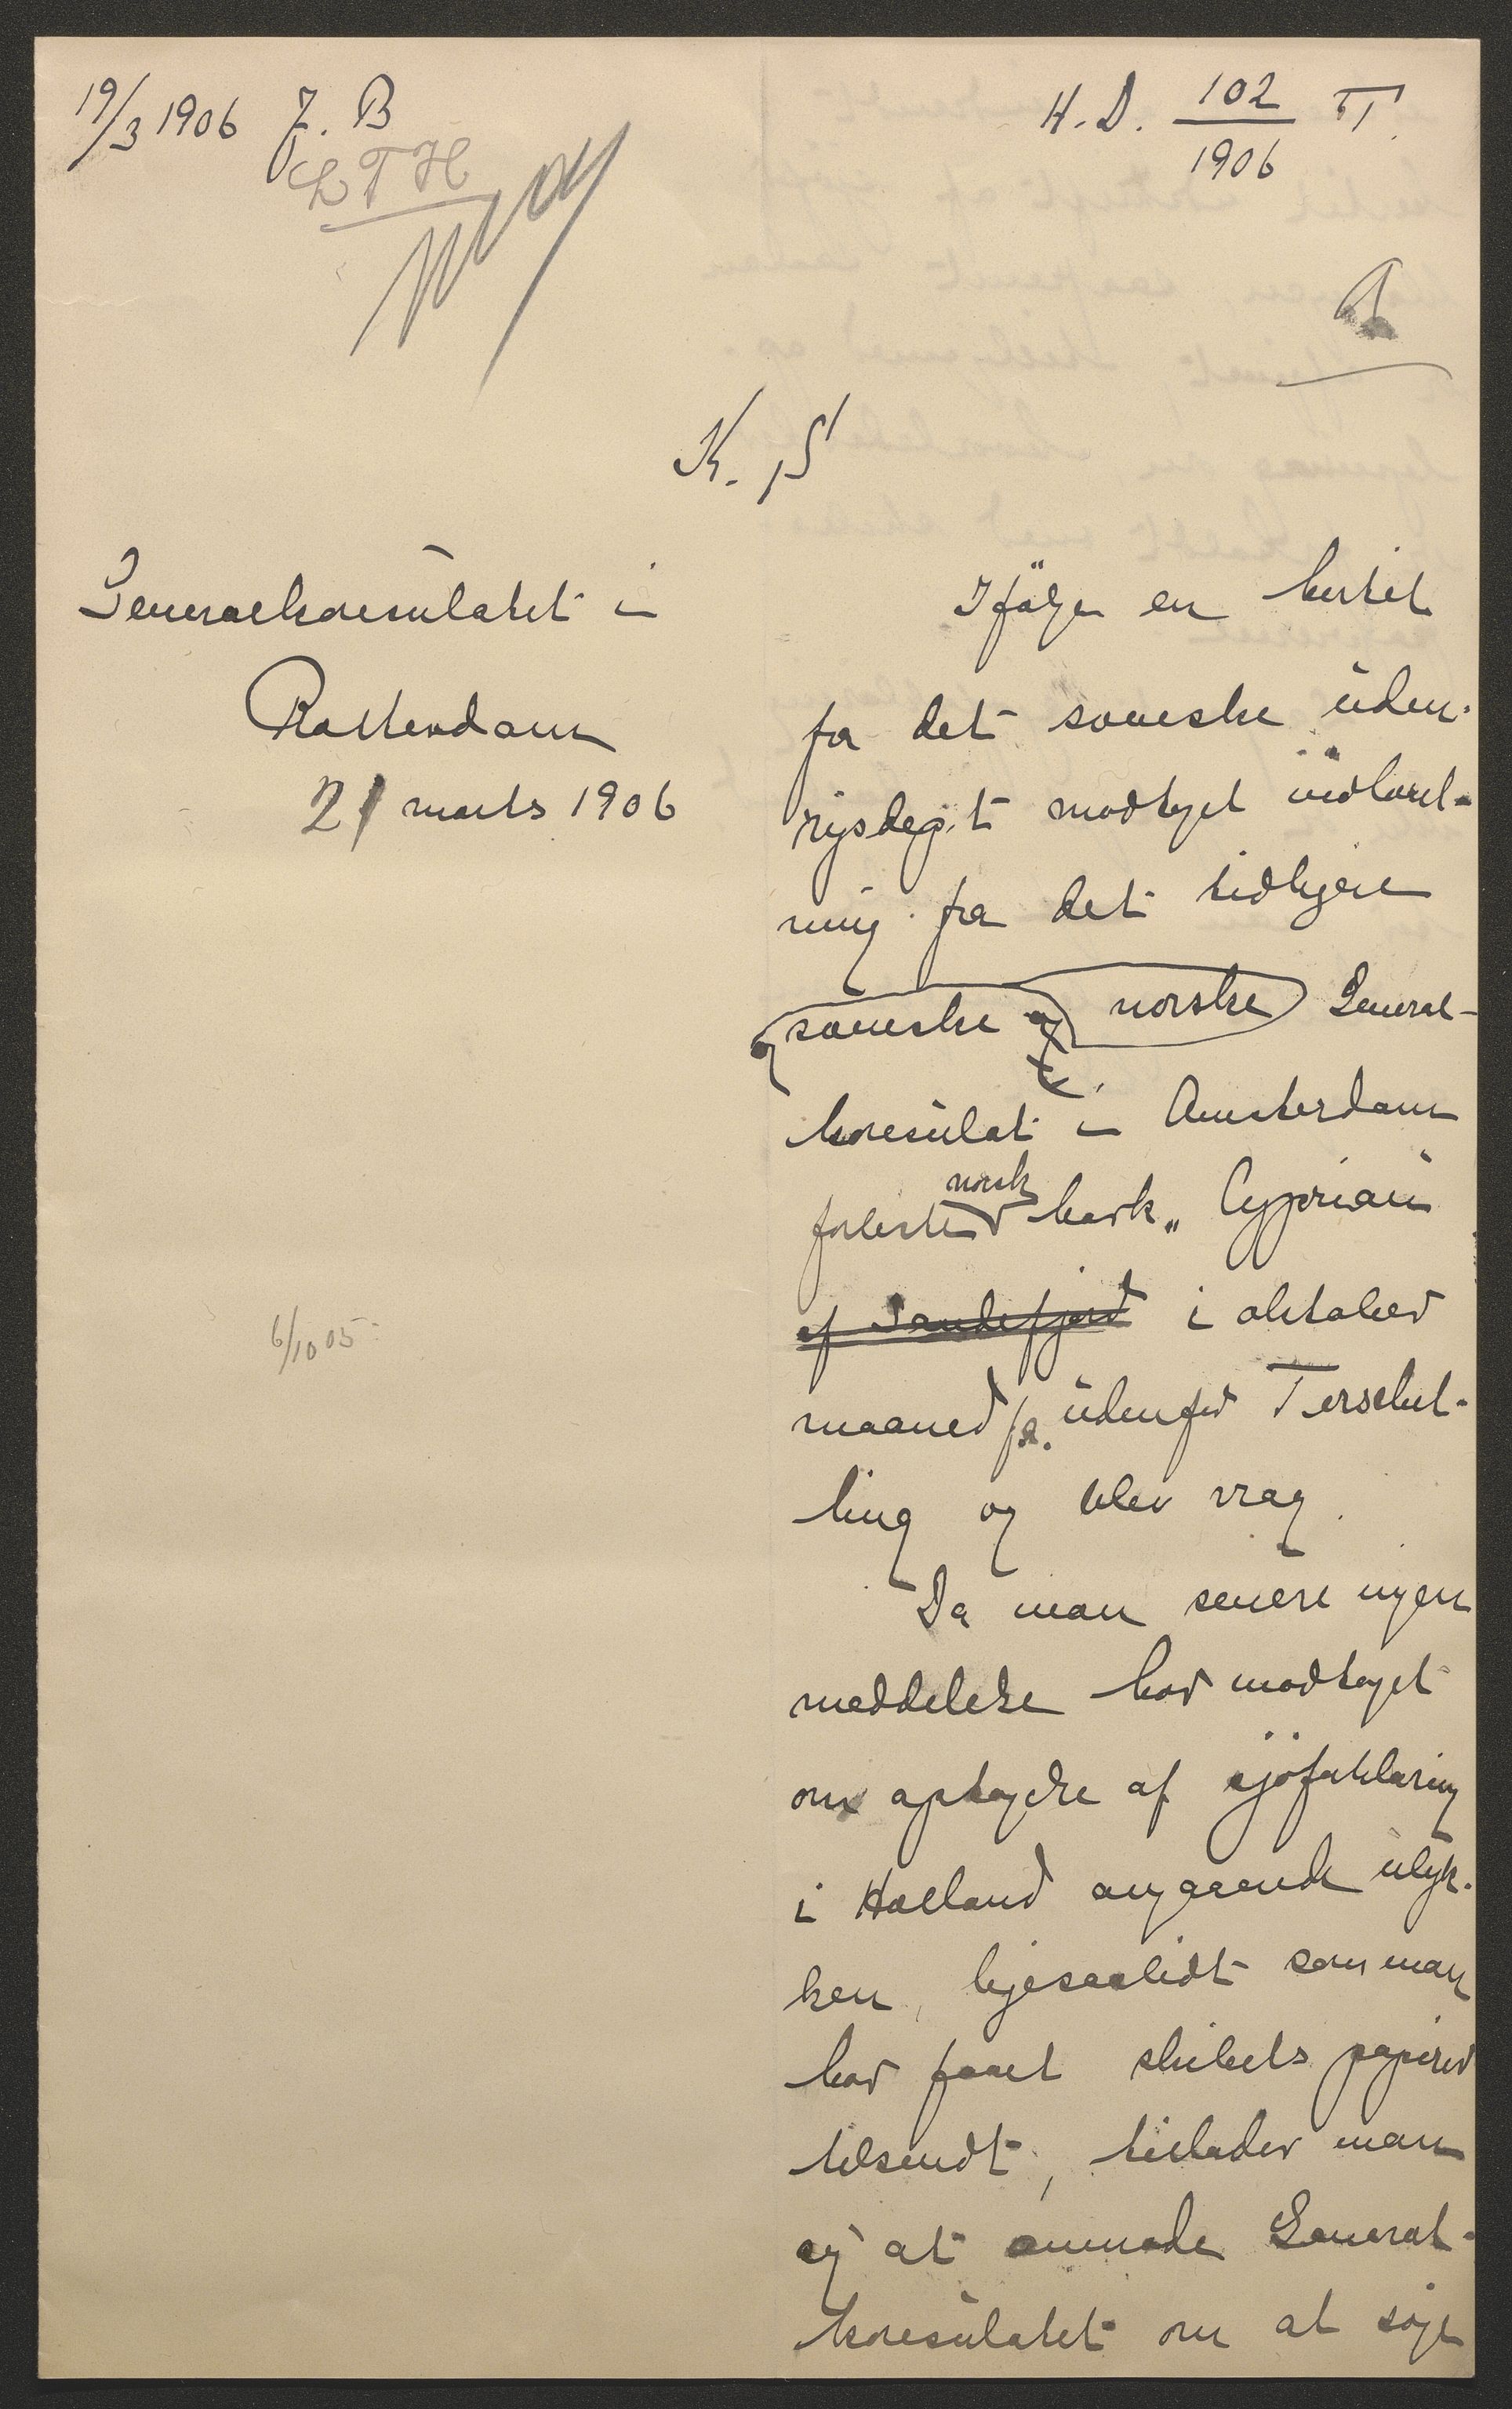 19/3 1906 J. B
LTH
H. D. 102/1906 II.
K. S
Generalkonsulatet i
Rotterdam
21 marts 1906
6/10 05
Ifølge en hertil
fra det svenske uden-
rigsdep.t modtaget indberet-
ning fra det tidligere
svenske og norske General-
konsulat i Amsterdam
forliste norsk bark „Cyprian"
af Sandefjord i oktober
maaned f.a. udenfor Terschel-
ling og blev vrag.
Da man senere ingen
meddelelse har modtaget
om optagelse af sjøforklaring
i Holland angaaende ulyk-
ken, ligesaalidt som man
har faaet skibets papirer
tilsendt, tillader man
sig at anmode General-
konsulatet om at søge